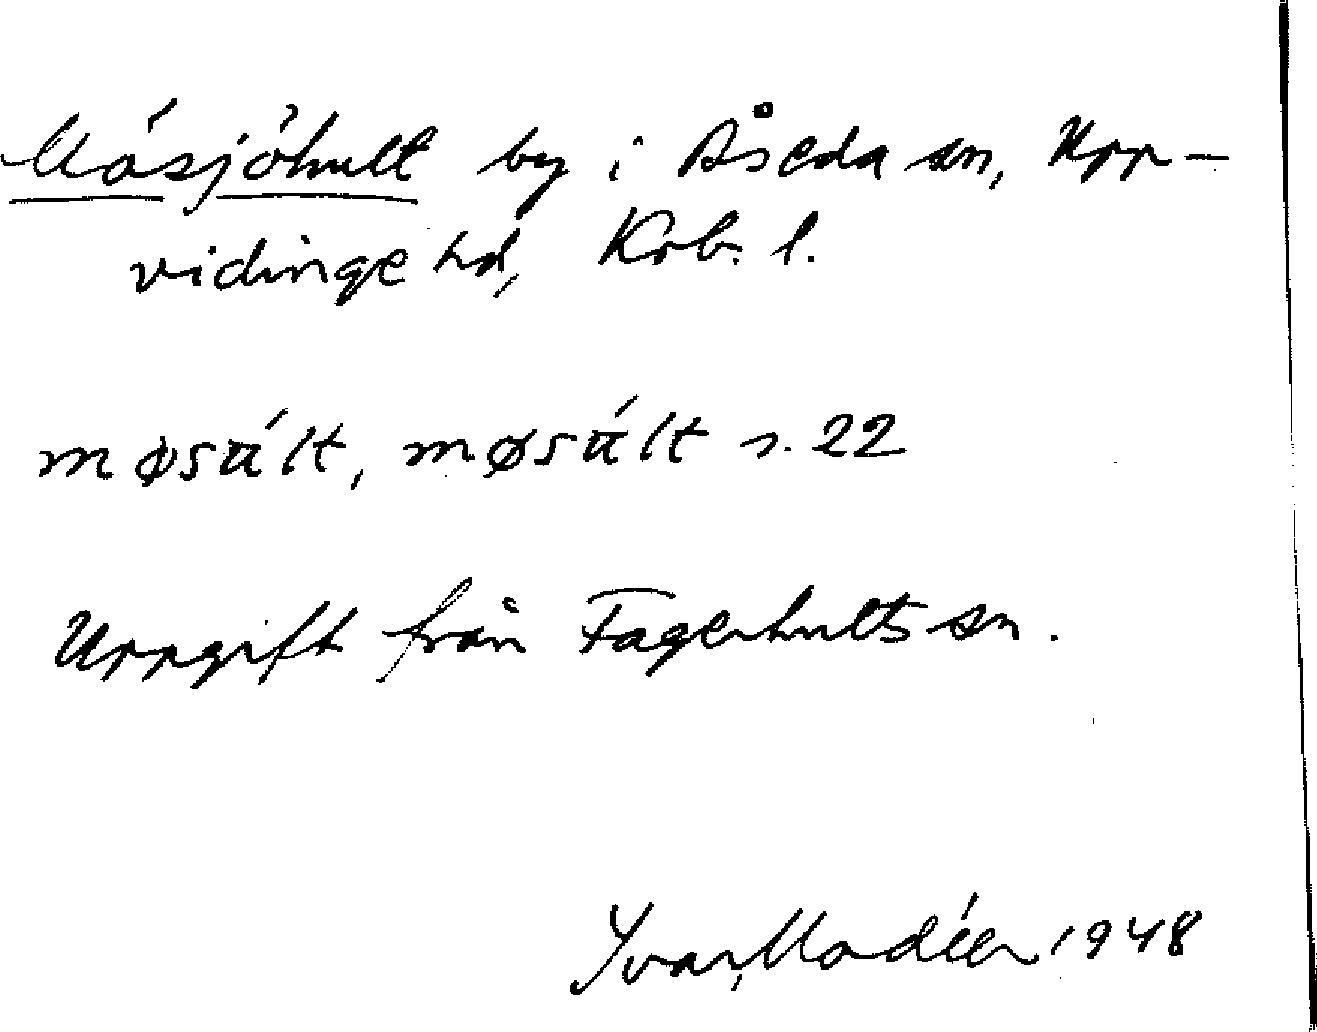 Mösjöhult by i Åseda sn, Upp-
vidinge hd, Krb. l.
møsúlt, møsúlt s. 22
Uppgift från Fagerhults sn.
Ivar Modéer 1948